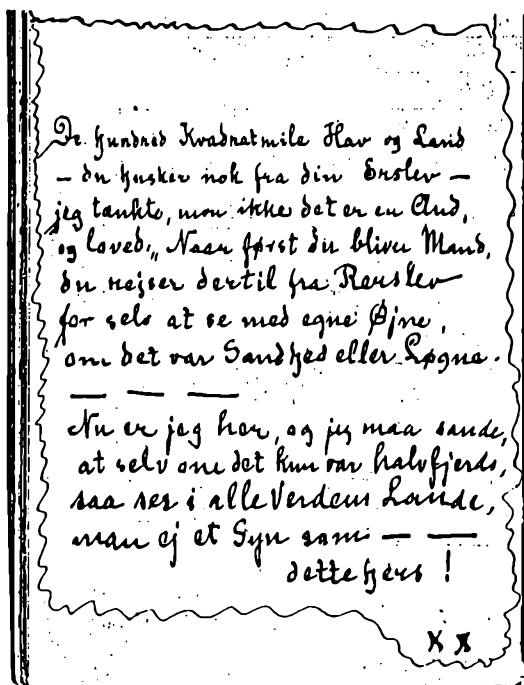 De hundred Kvadratmile Hav og Land
– du husker nok fra din Erslev –
jeg tænkte, mon ikke det er en And,
og loved: „Naar først du bliver Mand,
du rejser dertil fra Rerslev
for selv at se med egne Øjne,
om det var Sandhed eller Løgne.
— — —
Nu er jeg her, og jeg maa sande,
at selv om det kun var halvfjerds,
saa ses i alle Verdens Lande,
man ej et Syn som — —
dette hers!
X X